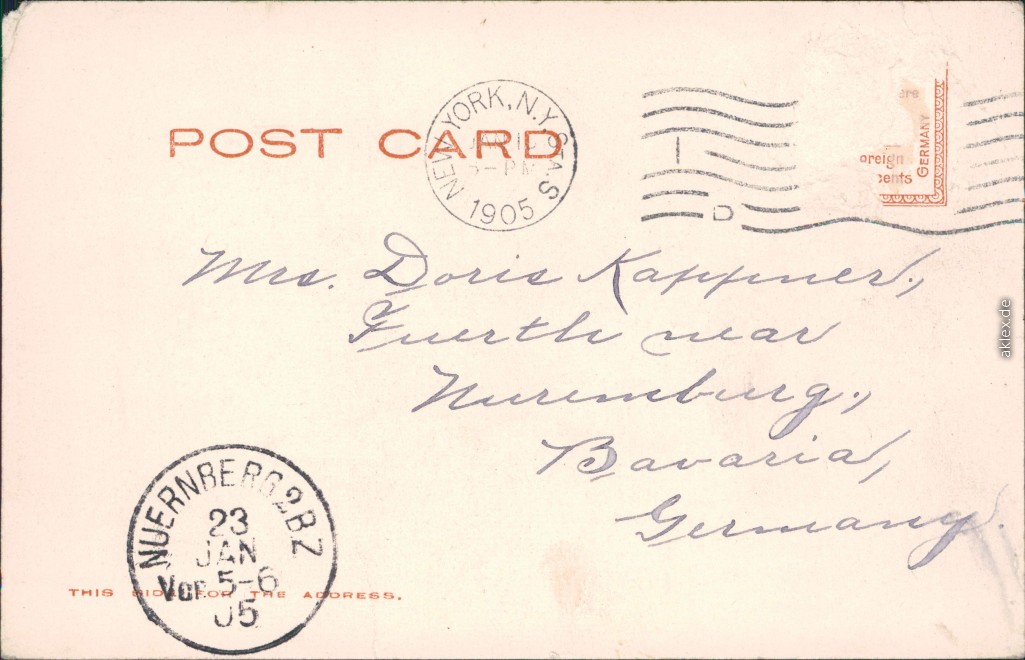 POST CARD
NEW YORK, N.Y. STA. S
1905
D
ere
oreign
cents
GERMANY
Mrs. Doris Kappner,
Fuerth near
Nuremburg,
Bavaria,
Germany.
NUERNBERG 2 BZ
23
JAN
Vor 5-6
05
THIS SIDE FOR THE ADDRESS.
aklex.de